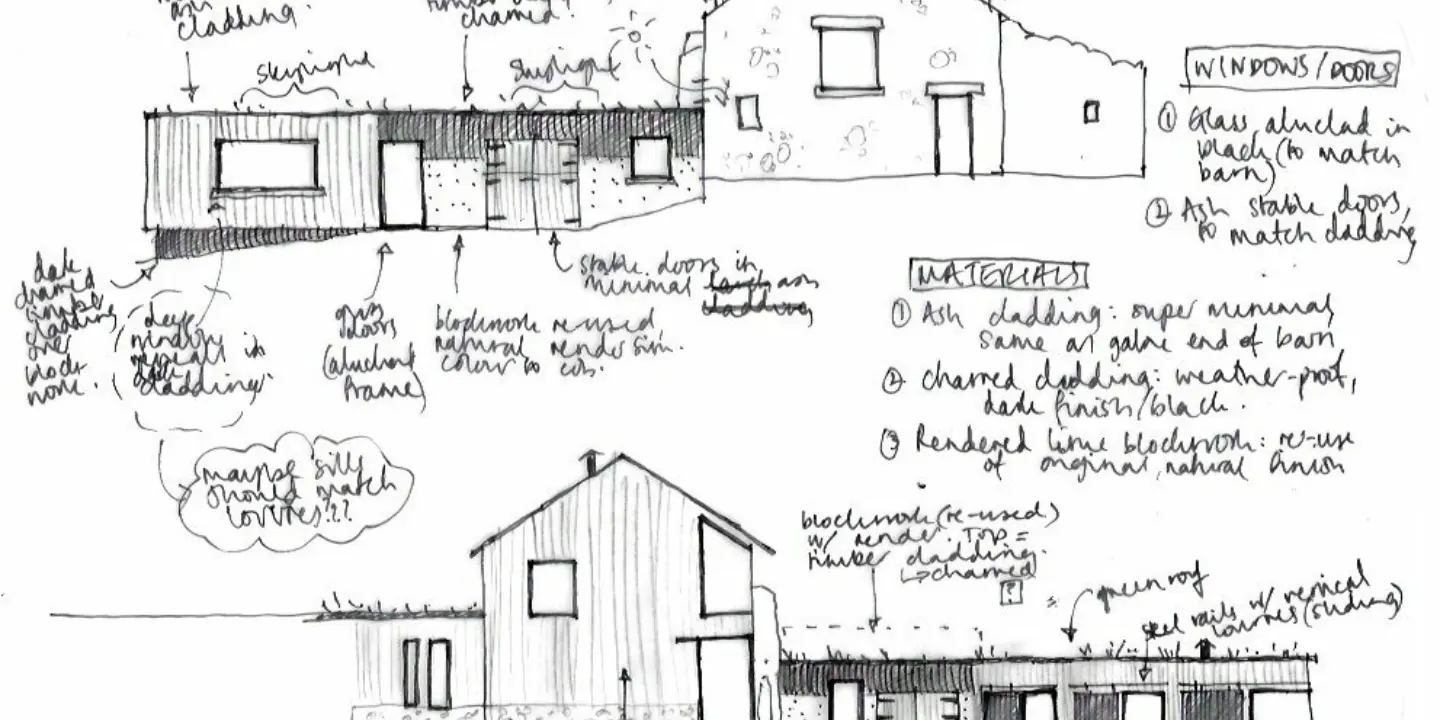 cladding.
charred.
skylight
skylight
WINDOWS/DOORS
① Glass, aluclad in
black (to match
barn)
② Ash stable doors,
to match cladding
dark
charred
timber
cladding
over
block
work.
deep
window
reveall in
cladding.
glass
doors
(aluclad
frame)
blockwork re-used,
natural render sim.
colour to cob.
stable doors in
minimal ash
cladding
MATERIALS
① Ash cladding: super minimal,
same as gable end of barn
② Charred cladding: weather-proof,
dark finish/black.
③ Rendered lime blockwork: re-use
of original, natural finish
maybe sills
should match
louvres???
blockwork (re-used)
w/ render. Top =
timber cladding.
↳charred
?
green roof
steel rails w/ vertical
louvres (sliding)